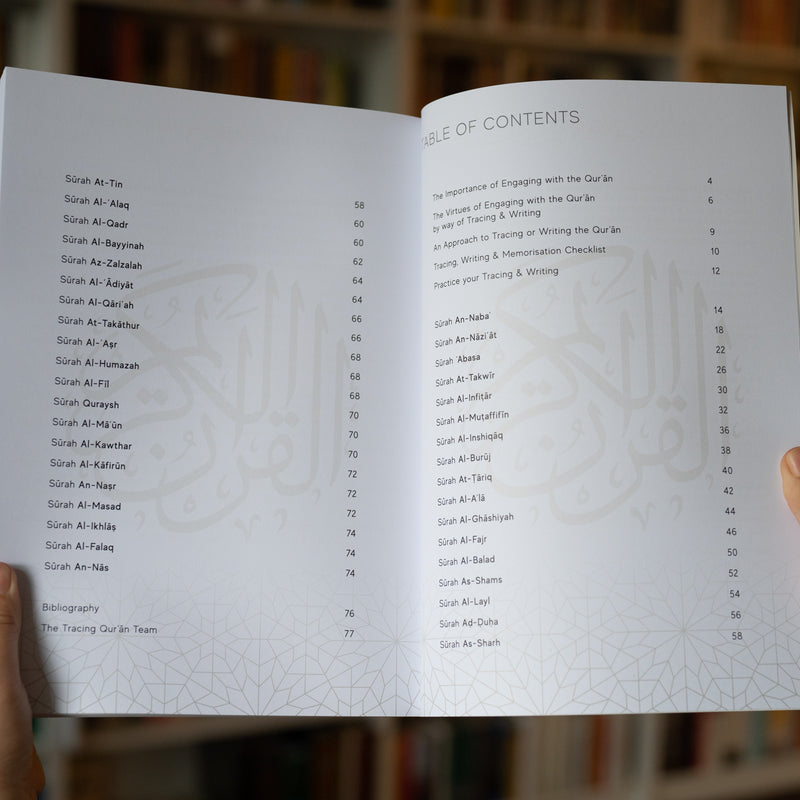 TABLE OF CONTENTS
The Importance of Engaging with the Qur’ān 4
The Virtues of Engaging with the Qur’ān
by way of Tracing & Writing 6
An Approach to Tracing or Writing the Qur’ān 9
Tracing, Writing & Memorisation Checklist 10
Practice your Tracing & Writing 12
Sūrah An-Naba’ 14
Sūrah An-Nāzi‘āt 18
Sūrah ‘Abasa 22
Sūrah At-Takwīr 26
Sūrah Al-Infiṭār 30
Sūrah Al-Muṭaffifīn 32
Sūrah Al-Inshiqāq 36
Sūrah Al-Burūj 38
Sūrah At-Ṭāriq 40
Sūrah Al-A‘lā 42
Sūrah Al-Ghāshiyah 44
Sūrah Al-Fajr 46
Sūrah Al-Balad 50
Sūrah As-Shams 52
Sūrah Al-Layl 54
Sūrah Ad-Ḍuḥa 56
Sūrah As-Sharḥ 58
القرآن الكريم
Sūrah At-Tin 58
Sūrah Al-‘Alaq 60
Sūrah Al-Qadr 60
Sūrah Al-Bayyinah 62
Sūrah Az-Zalzalah 64
Sūrah Al-‘Ādiyāt 64
Sūrah Al-Qāri‘ah 66
Sūrah At-Takāthur 66
Sūrah Al-‘Aṣr 68
Sūrah Al-Humazah 68
Sūrah Al-Fīl 68
Sūrah Quraysh 70
Sūrah Al-Mā‘ūn 70
Sūrah Al-Kawthar 70
Sūrah Al-Kāfirūn 72
Sūrah An-Naṣr 72
Sūrah Al-Masad 72
Sūrah Al-Ikhlāṣ 74
Sūrah Al-Falaq 74
Sūrah An-Nās 74
Bibliography 76
The Tracing Qur’ān Team 77
القرآن الكريم